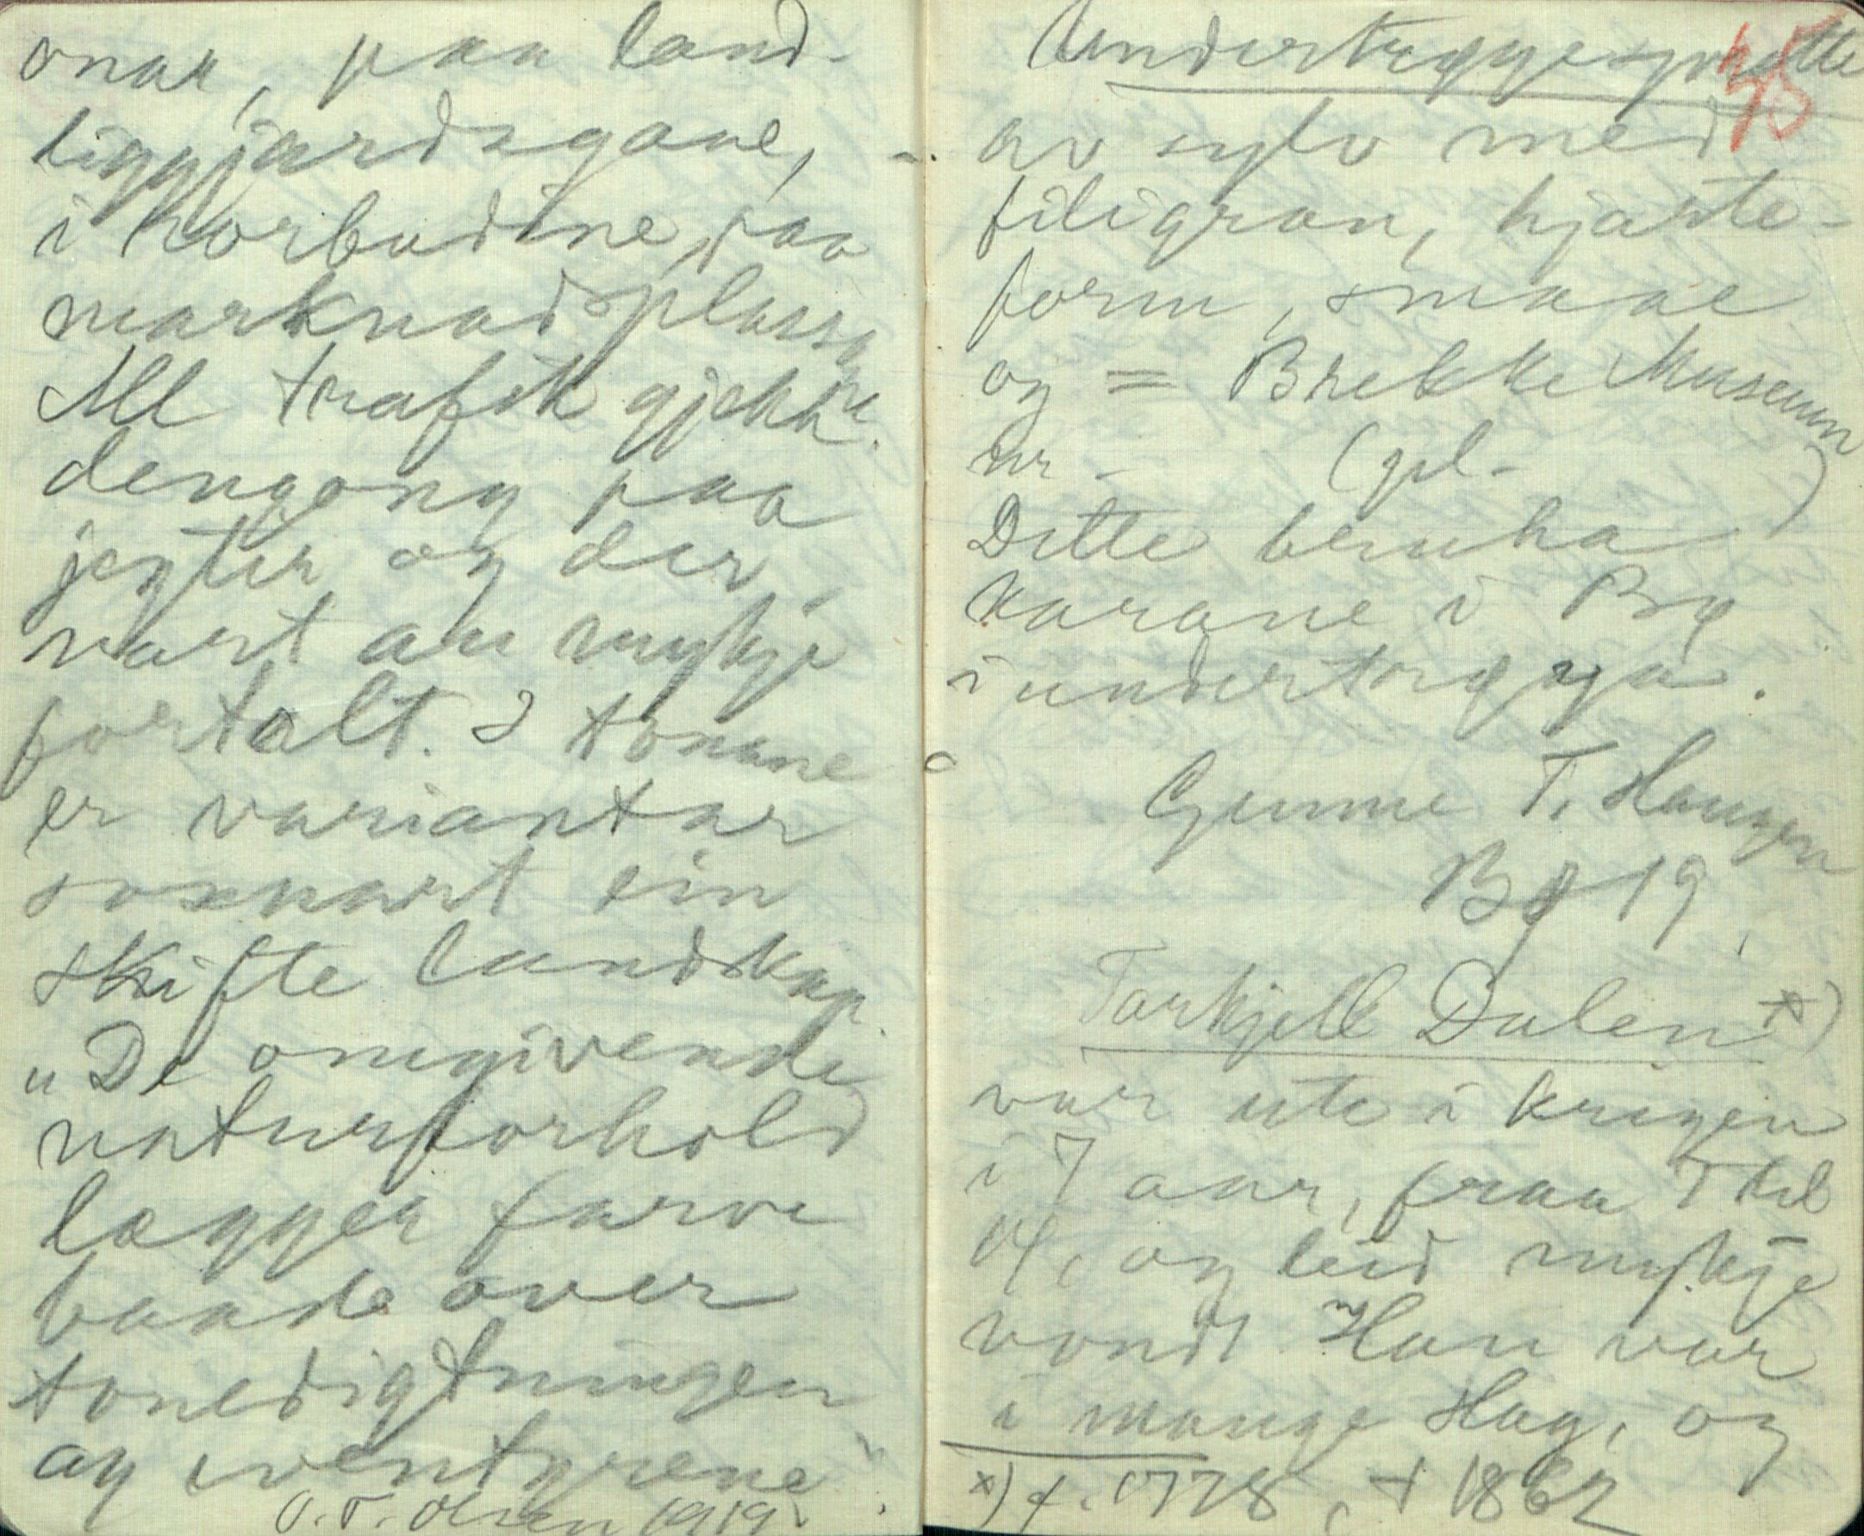 onar, paa land-
liggjardsgane,
i horbudine, paa
marknadsplassa
ne.
All trafik gjekk
dengong paa
jegter og der
vart au mykje
fortalt. I tonane
er variantar
sosnart ein
skifte landskap.
"De omgivende
naturforhold
lægger farve
baade over
tonedigtningen
og eventyrene"
O. T. Olsen 1919.
Undertryggesprette 45
av sylv med
filigran, hjarte-
form, smaae
og = Brekke Museum
nr - (pl - )
Dette bruka
karane i Bø
i undertrøyya.
Gunne T. Haugen
Bø 19
Tarkjell Dalen x)
var ute i krigen
i 7 aar, fraa 7 til
14, og leid mykje
vondt Han var
i mange slag, og
x) f. 1778, + 1862